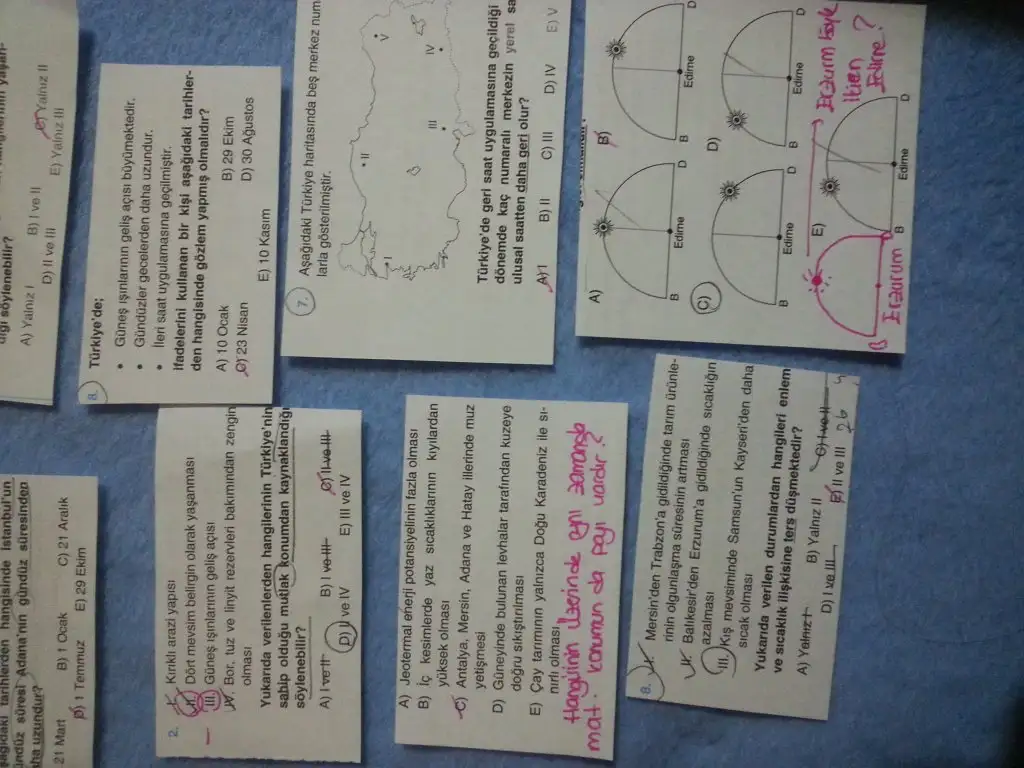 aşağıdaki tarihlerden hangisinde İstanbul'un
gündüz süresi Adana'nın gündüz süresinden
daha uzundur?
21 Mart B) 1 Ocak C) 21 Aralık
D) 1 Temmuz E) 29 Ekim
söylenebilir?
A) Yalnız I B) I ve II
D) II ve III E) Yalnız III
2. I. Kırıklı arazi yapısı
II. Dört mevsim belirgin olarak yaşanması
III. Güneş ışınlarının geliş açısı
IV. Bor, tuz ve linyit rezervleri bakımından zengin
olması
Yukarıda verilenlerden hangilerinin Türkiye'nin
sahip olduğu mutlak konumdan kaynaklandığı
söylenebilir?
A) I ve II B) I ve III C) II ve III
D) II ve IV E) III ve IV
8. Türkiye'de;
• Güneş ışınlarının geliş açısı büyümektedir.
• Gündüzler gecelerden daha uzundur.
• İleri saat uygulamasına geçilmiştir.
ifadelerini kullanan bir kişi aşağıdaki tarihler-
den hangisinde gözlem yapmış olmalıdır?
A) 10 Ocak B) 29 Ekim
C) 23 Nisan D) 30 Ağustos
E) 10 Kasım
A) Jeotermal enerji potansiyelinin fazla olması
B) İç kesimlerde yaz sıcaklıklarının kıyılardan
yüksek olması
C) Antalya, Mersin, Adana ve Hatay illerinde muz
yetişmesi
D) Güneyinde bulunan levhalar tarafından kuzeye
doğru sıkıştırılması
E) Çay tarımının yalnızca Doğu Karadeniz ile sı-
nırlı olması
Hangisinin üzerinde aynı zamanda
mat. konumun da payı vardır?
7. Aşağıdaki Türkiye haritasında beş merkez num
larla gösterilmiştir.
I
II
III
IV
V
Türkiye'de geri saat uygulamasına geçildiği
dönemde kaç numaralı merkezin yerel sa
ulusal saatten daha geri olur?
A) I B) II C) III D) IV E) V
8. I. Mersin'den Trabzon'a gidildiğinde tarım ürünle-
rinin olgunlaşma süresinin artması
II. Balıkesir'den Erzurum'a gidildiğinde sıcaklığın
azalması
III. Kış mevsiminde Samsun'un Kayseri'den daha
sıcak olması
Yukarıda verilen durumlardan hangileri enlem
ve sıcaklık ilişkisine ters düşmektedir?
A) Yalnız I B) Yalnız II C) I ve II
D) I ve III E) II ve III
A) B)
B Edirne D B Edirne D
C) D)
B Edirne D B Edirne D
E)
B Edirne D
B Erzurum
Erzurum böyle
iken
Edirne?